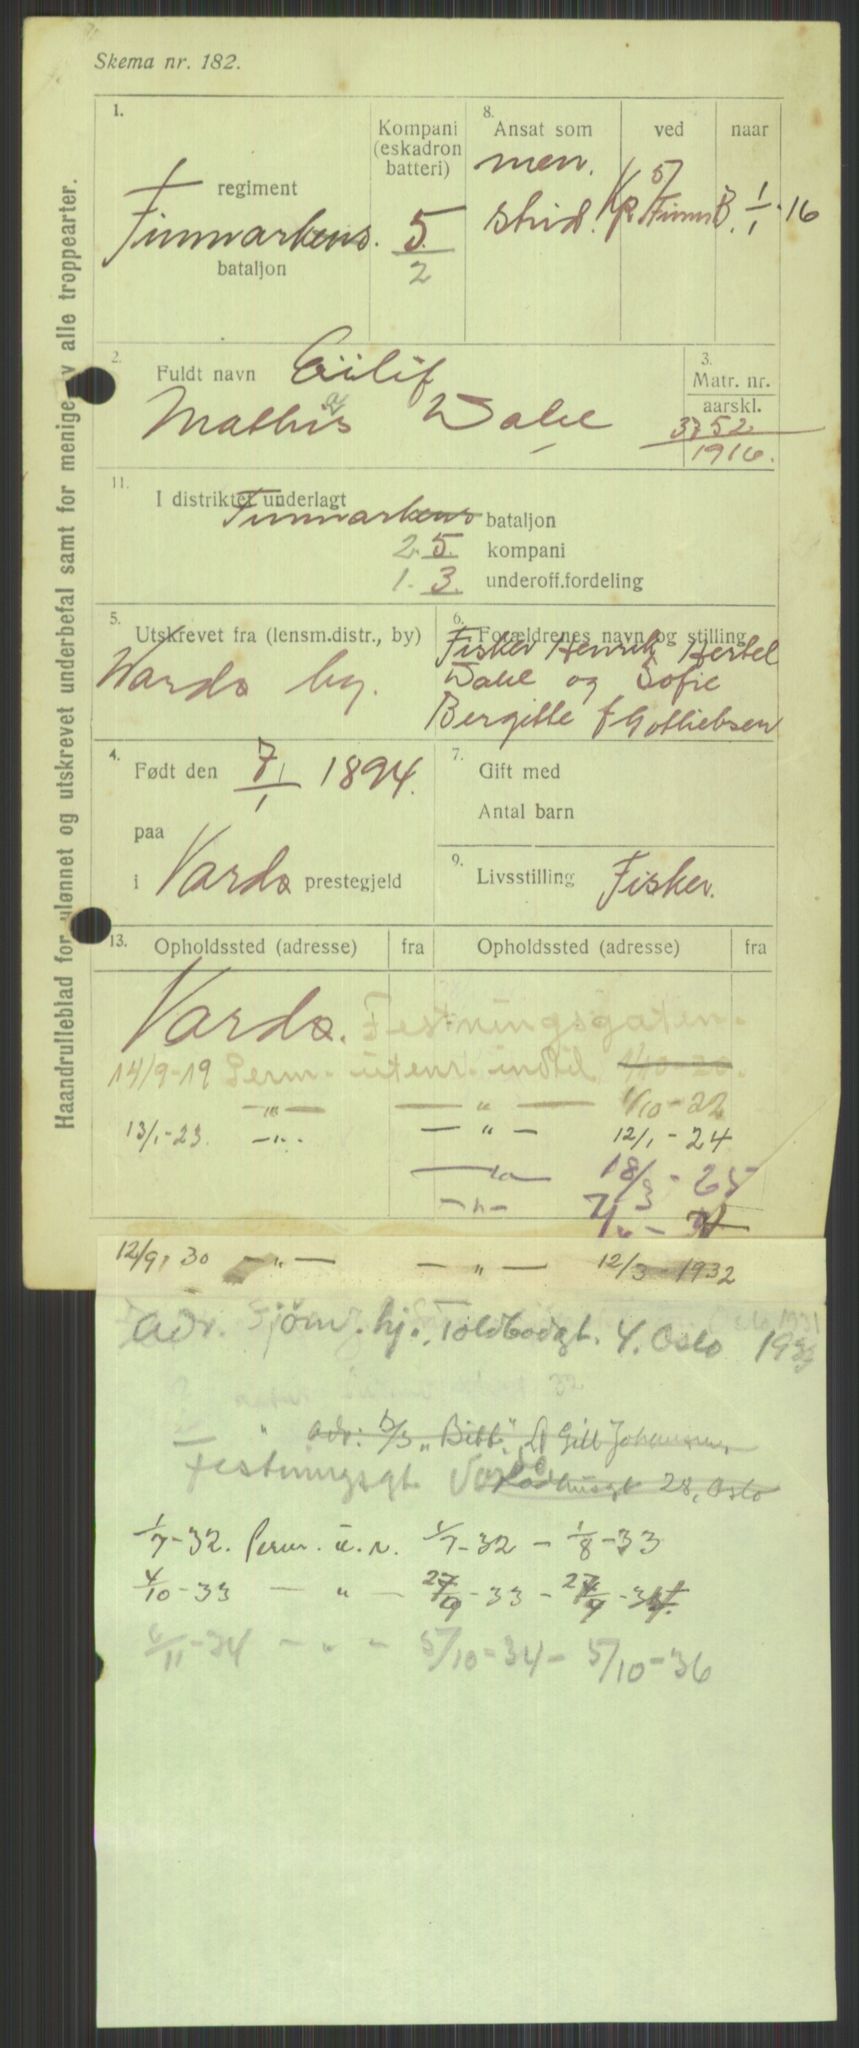 Skema nr. 182.
Haandrulleblad for ulønnet og utskrevet underbefal samt for menige av alle troppearter.
1.
regiment
Finnmarkens
bataljon
Kompani
(eskadron
batteri)
5
2
8.
Ansat som
ved
naar
men.
strid. Kp 5/Finnm B. 1/1-16
2.
Fuldt navn Eilif
Mathis Dahl
3.
Matr. nr.
aarskl.
52
1916.
11.
I distriktet underlagt
Finmarkens bataljon
2. 5. kompani
1. 3. underoff.fordeling
5.
Utskrevet fra (lensm.distr., by)
Vardø by.
6.
Forældrenes navn og stilling
Fisker Henrik Hertel
Dahl og Sofie
Bergitte f Gotliebsen
4.
Født den 7/1 1894.
paa
i Vardø prestegjeld
7.
Gift med
Antal barn
9.
Livsstilling Fisker.
13.
Opholdssted (adresse) fra Opholdssted (adresse) fra
Vardø. Festningsgaten.
14/9-19 Perm. utenr. indtil 1/10-20.
-"- -"- 1/10-22
13/1-23. -"- -"- 12/1-24
-"- 18/3-25
-"-
12/9-30 -"- -"- 12/3-1932
Adr. Sjøm. hj., Toldbodgt. 4. Oslo
" adr: D/S "Bitt" Johansen,
Festningsgt. Vardø
Raadhusgt 28, Oslo
1/7-32. Perm. u.r. 1/7-32 - 1/8-33
4/10-33 - " - 27/9-33 - 27/9-34.
6/11-34 - " - 5/10-34 - 5/10-36